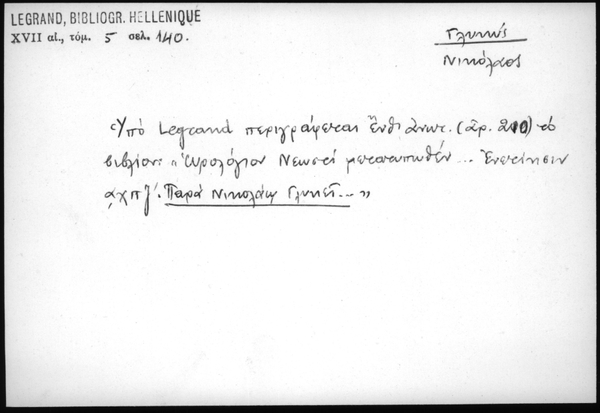 LEGRAND, BIBLIOGR. HELLENIQUE
XVII αἰ., τόμ. 5 σελ. 140.
Γλυκύς
Νικόλαος
«Ὑπό Legrand περιγράφεται ἔνθ' ἀνωτ. (ἀρ. 210) τό
βιβλίον: «Ὡρολόγιον Νεωστί μετατυπωθέν... Ἐνετίησιν
Παρά Νικολάῳ Γλυκεῖ...»